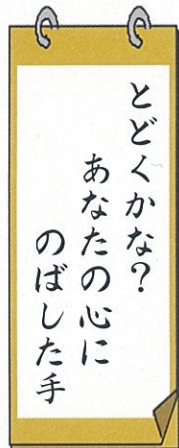 とどくかな？
あなたの心に
のばした手